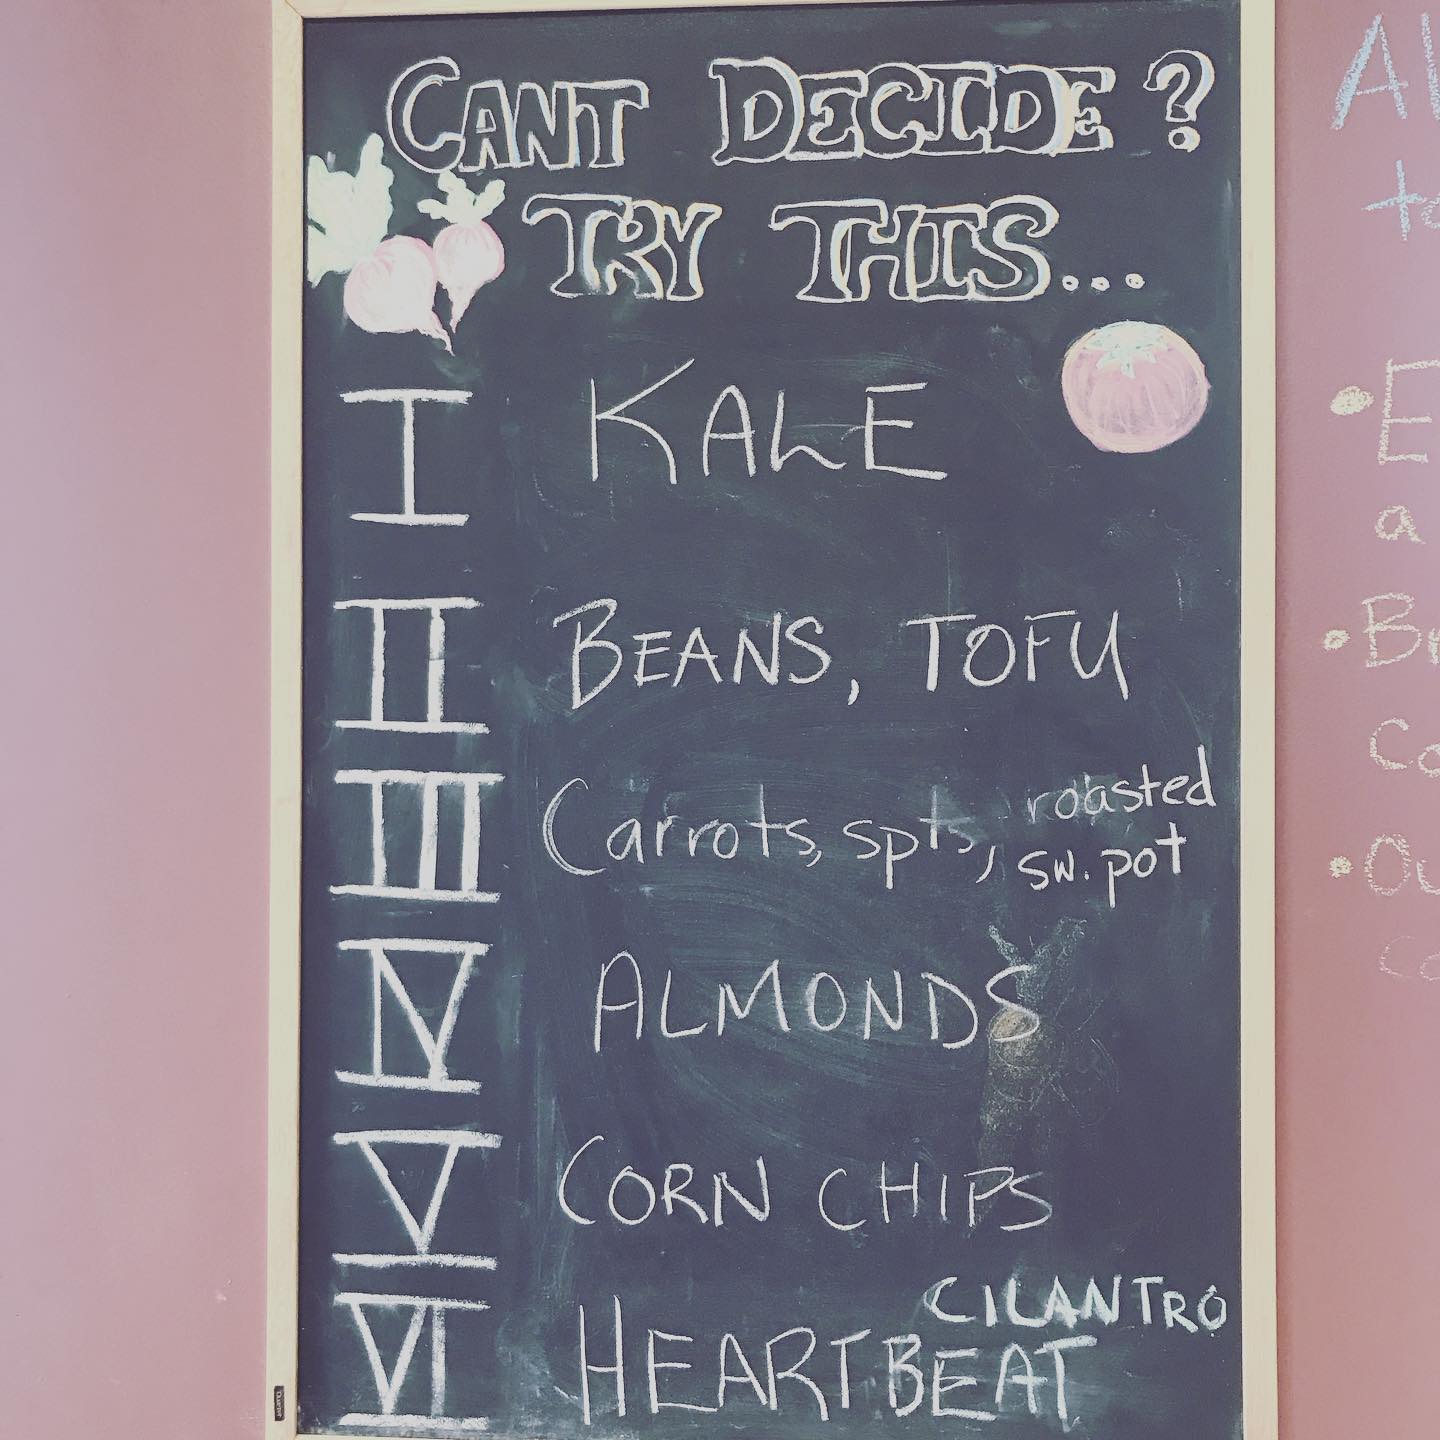 CANT DECIDE?
TRY THIS...
I KALE
II BEANS, TOFU
III Carrots, spts, roasted
sw. pot
IV ALMONDS
V CORN CHIPS
VI HEARTBEAT CILANTRO
Quartet